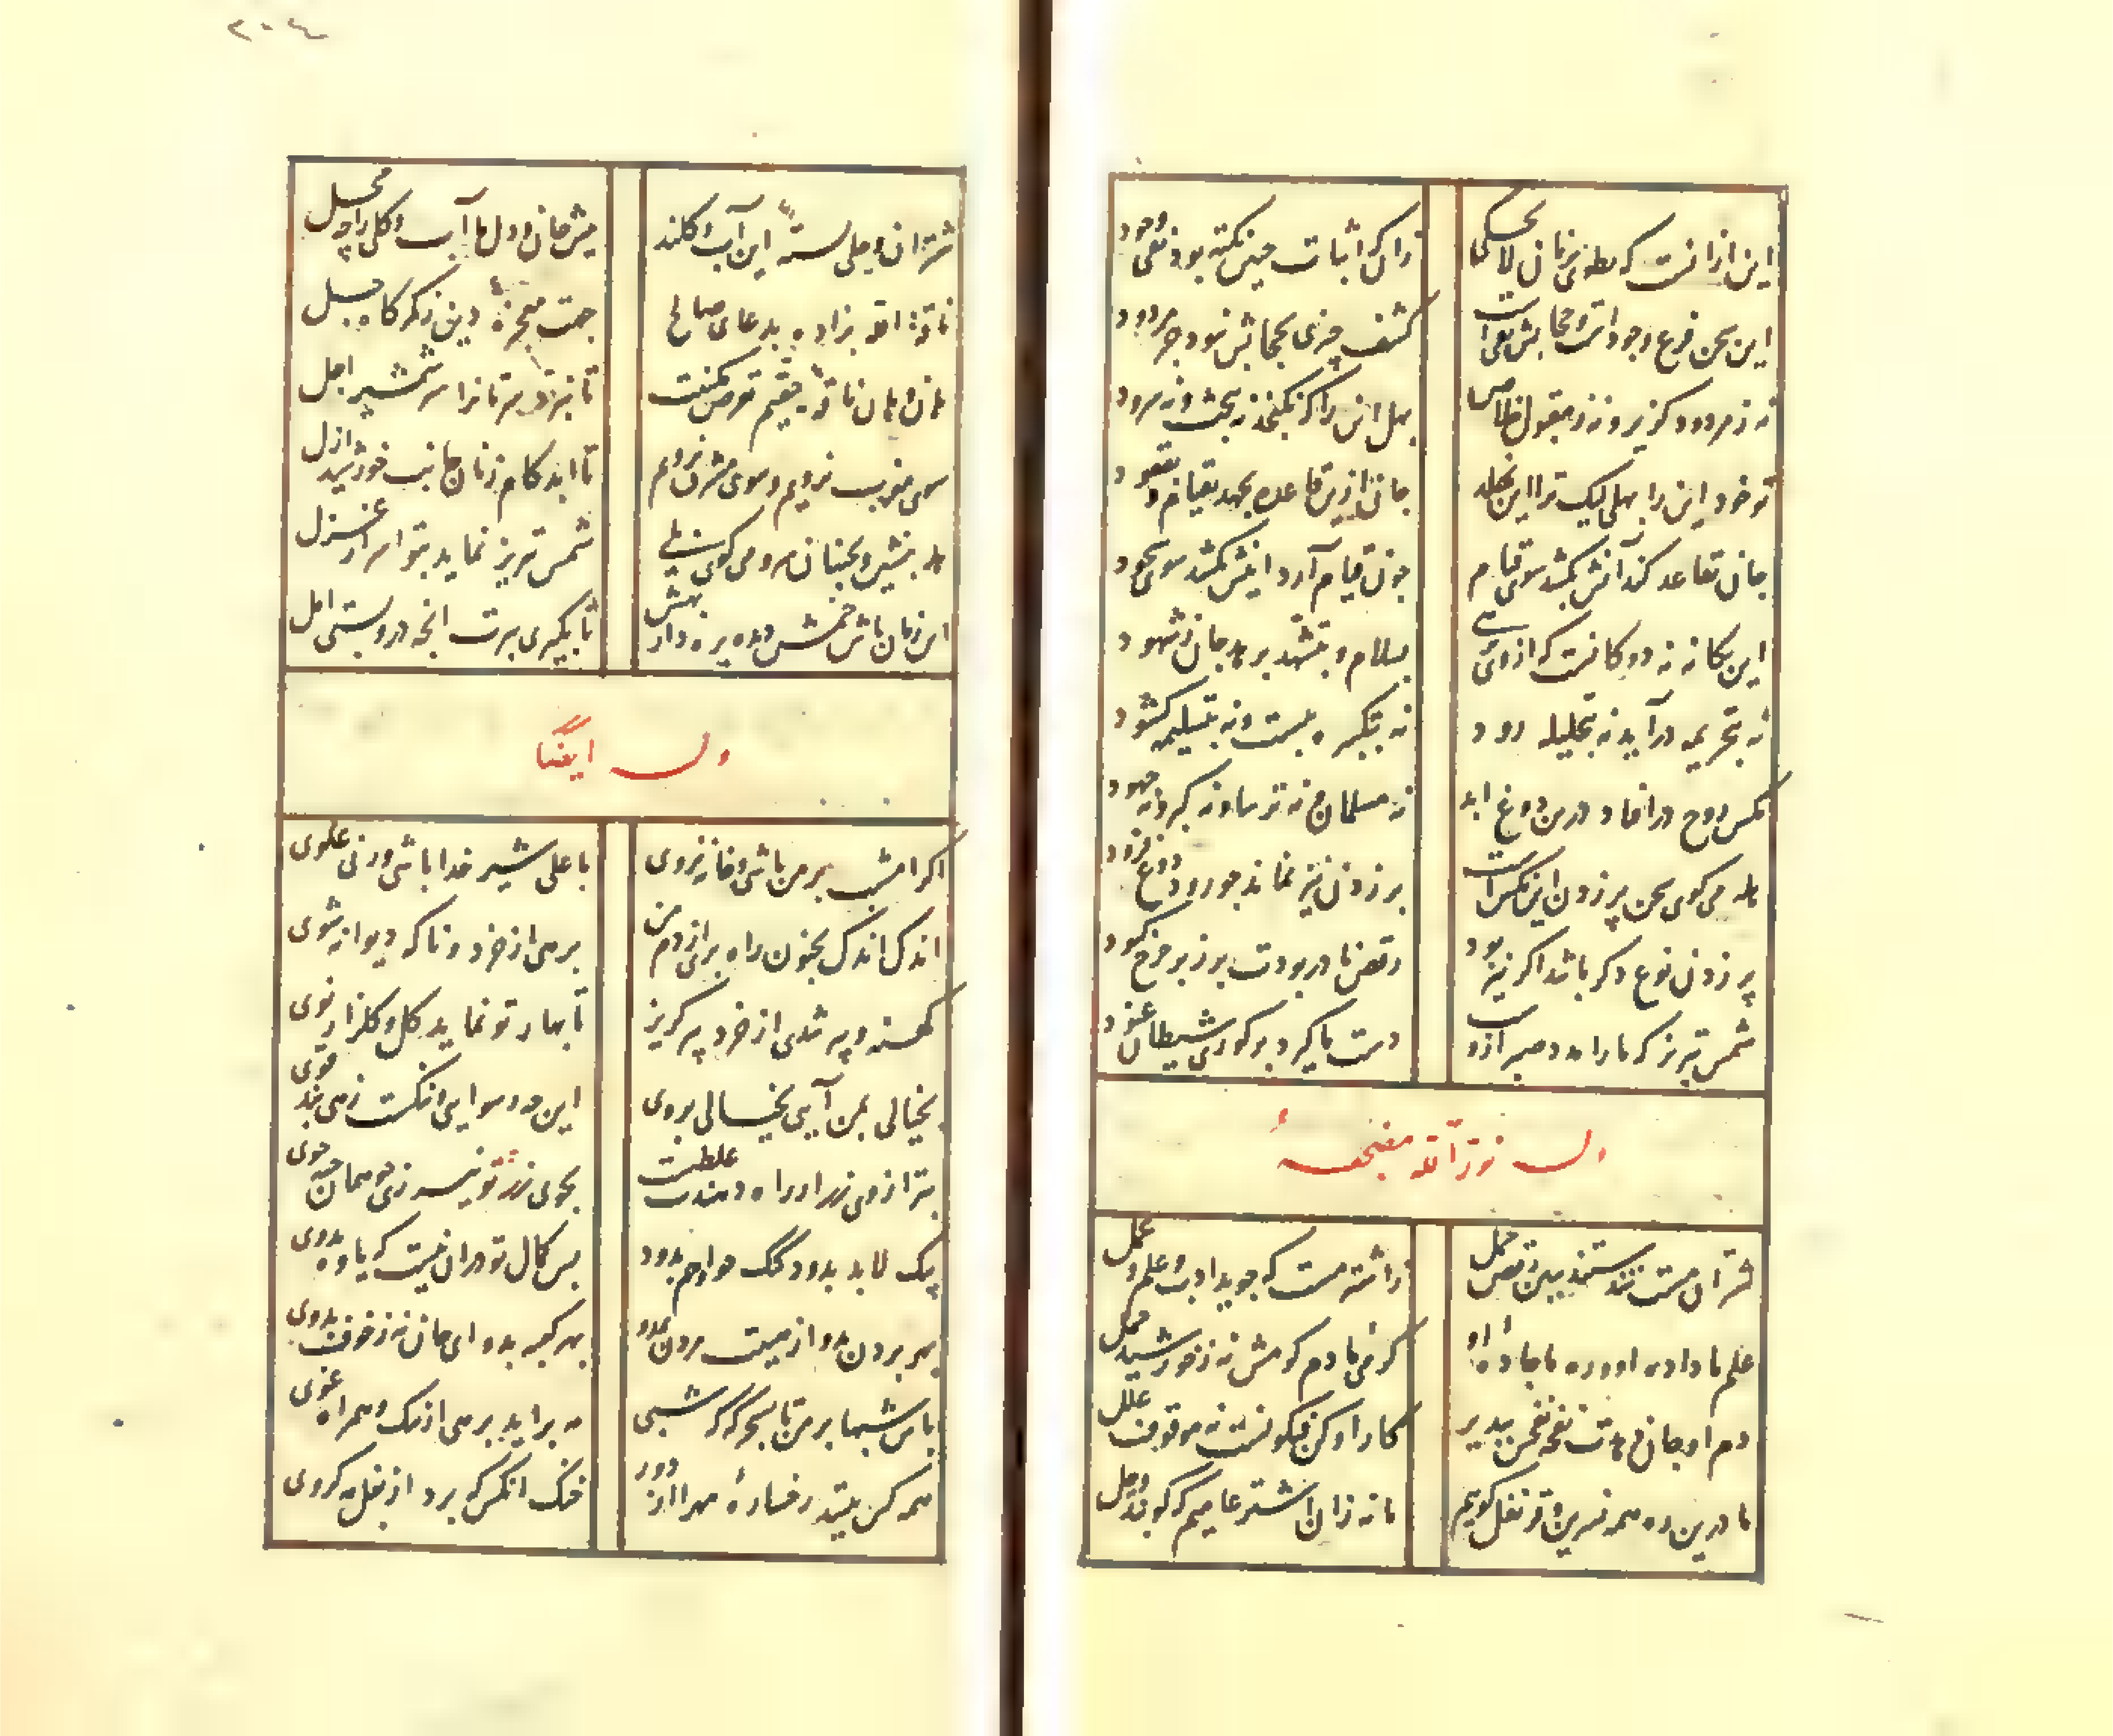 ۲۰۴
این ازانست که مطوی بزبان لا یحکی زانک اثبات چنین نکته بود نفی وجود
این سخن فرع وجودست و حجابست نفی کشف چیزی بحجابش نبود جز مردود
نه ز مردود گریزی نه ز مقبول خلاص بهل این را که نگنجد نه ببحث و نه سرود
تو خود این را بهلی لیک ترا این نهلد جان ازین قاعده نجهد بقیام و بقعود
جان تقاعد کند آتش بکشد سوی قیام چون قیام آرد اینش بکشد سوی سجود
این یکانه نه دوکانست که از وی برهی بسلام و بتشهد برهد جان ز شهود
نه بتحریمه درآید نه بتحلیله رود نه بتکبیره ببست و نه بتسلیم کشود
مکس روح درافتاد درین دوغ ابد نه مسلمان و نه ترسا و نه کبر و نه جهود
هله می‌کوی سخن پر زدن این مکس است پر زدن نیز نماند چو رود دوغ فرود
پر زدن نوع دکر باشد اکر نیز بود رقص نادر بودت بر زبر چرخ کبود
شمس تبریز که ما را بدو صبر ازوست دست ما کیرد بر کوری شیطان عنود
وله نور الله مضجعه
شتران مست شدستند ببین رقص جمل ز اشتر مست که جوید ادب و علم و عمل
علم ما داده او و ره ما جاده او کرمی ما دم کرمش نه ز خورشید حمل
دم او جان دهدت نفحه نفخت بپذیر کار او کن فیکونست نه موقوف علل
ما درین ره همه نسرین و قرنفل کوبیم ما نه زان اشتر عامیم که کوبد وحل
شتران وحلی بسته این آب و کلند پیش جان و دل ما آب و کلی را چه محل
ناقة الله بزاده بدعای صالح جهت معجزه دین ز کمرکاه جبل
هان و هان ناقه حقیم تعرض مکنیت تا نبرد سرتانرا سر شمشیر اجل
سوی مغرب نرویم و سوی مشرق نرویم تا ابد کام زنان جانب خورشید ازل
هله بنشین و بجنبان سر و می‌کوی بلی شمس تبریز نماید بتو اسرار غزل
این زمان باش خمش دیده بره دار بهش تا بکیری برت آنچه درو بستی امل
وله ایضا
اکر امشب بر من باشی و خانه نروی یا علی شیر خدا باشی و یا خود علوی
اندک اندک بجنون راه بری از دم من برهی از خرد و ناکه دیوانه شوی
کهنه و پیر شدی از خرد پیر کریز تا بهار تو نماید کل و کلزار نوی
بخیالی بمن آیی بخیالی بروی این چه رسوایی و ننکست زهی بند قوی
بترازوی زر ار راه دهندت غلطست بجوی زر تو نیرزی همان حبه جوی
پیک لابد بدود کیک چو او هم بدود پس کمال تو در آن نیست که یاوه بدوی
بهر بردن بدو از هیبت مردن بمدو بهر کعبه بدو ای جان نه ز خوف بدوی
باش شبها بر من تا بسحر تا که شبی مه برآید برهی از ره و همراه غوی
همه کس بیند رخساره مه را از دور خنک آنکس که برد از بغل مه کروی